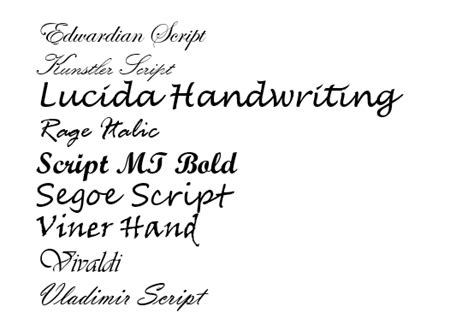 Edwardian Script
Kunstler Script
Lucida Handwriting
Rage Italic
Script MT Bold
Segoe Script
Viner Hand
Vivaldi
Vladimir Script